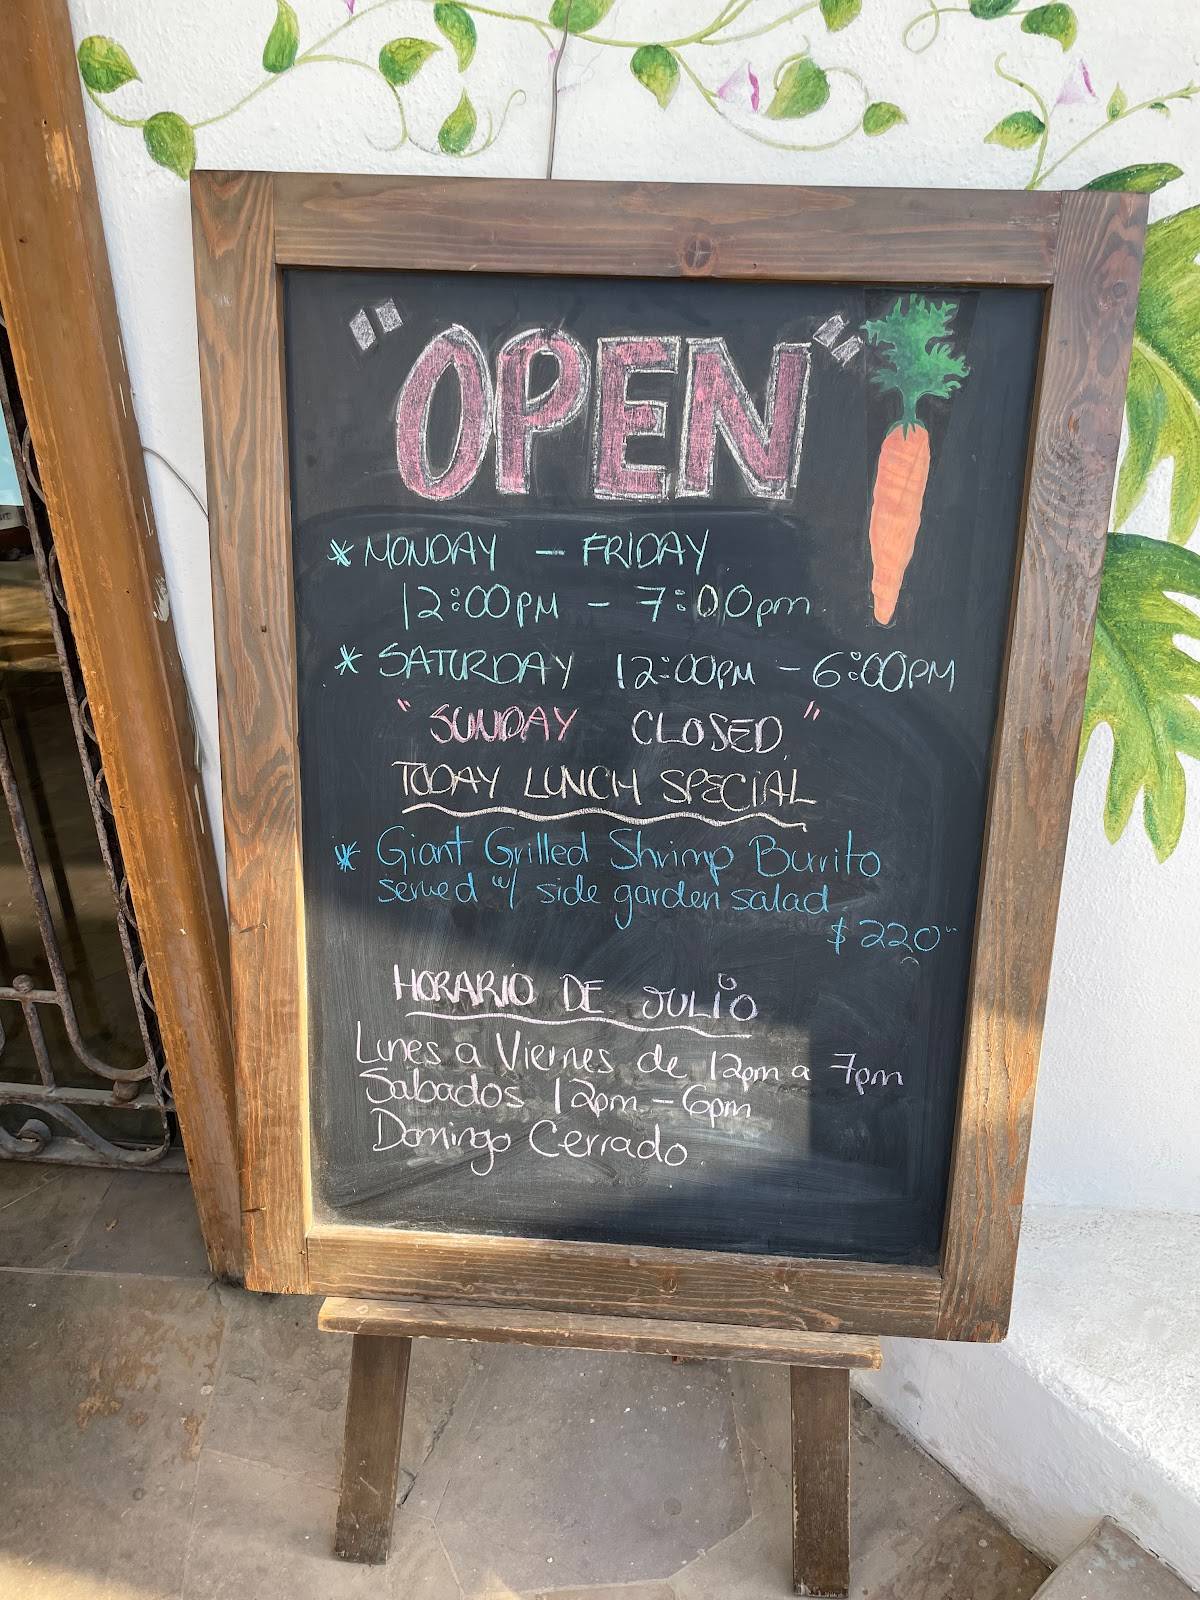 "OPEN"
* MONDAY - FRIDAY
12:00PM - 7:00pm
* SATURDAY 12:00PM - 6:00PM
"SUNDAY CLOSED"
TODAY LUNCH SPECIAL
* Giant Grilled Shrimp Burrito
served w/ side garden salad
$220
HORARIO DE JULIO
Lunes a Viernes de 12pm a 7pm
Sabados 12pm - 6pm
Domingo Cerrado